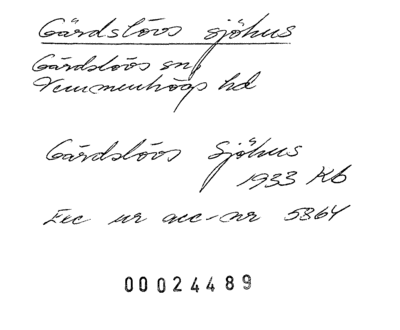 Gårdslövs sjöhus
Gårdslövs sn,
Vemmenhögs hd
Gårdslövs Sjöhus
1933 Kb
Exc ur acc-nr 5864
00024489